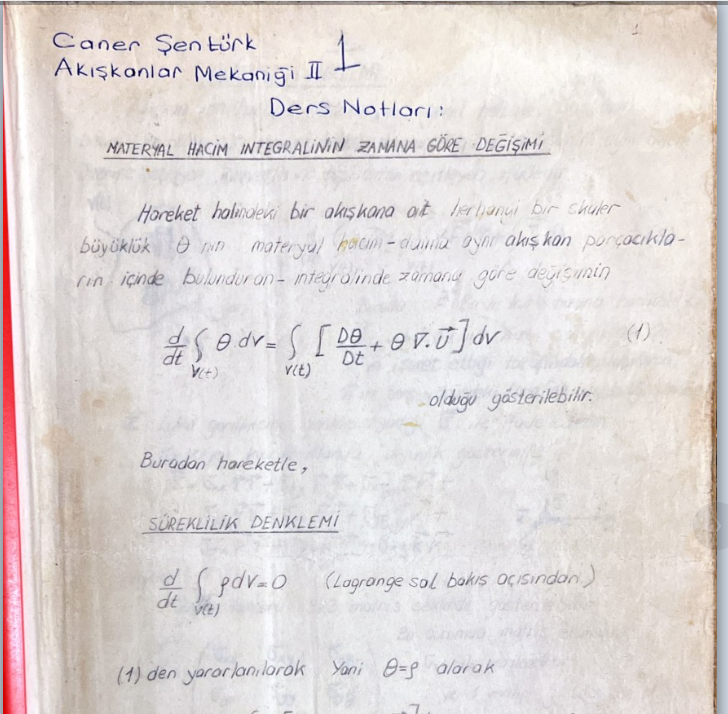 1
Caner Şentürk 1
Akışkanlar Mekaniği II
Ders Notları:
MATERYAL HACİM INTEGRALİNİN ZAMANA GÖRE DEĞİŞİMİ
Hareket halindeki bir akışkana ait herhangi bir skaler
büyüklük θ nın materyal hacim-daima aynı akışkan parçacıkla-
rın içinde bulunduran- integralinde zamana göre değişimin
d/dt ∫V(t) θ dv = ∫V(t) [Dθ/Dt + θ ∇.U⃗] dv (1)
olduğu gösterilebilir.
Buradan hareketle,
SÜREKLİLİK DENKLEMİ
d/dt ∫V(t) ρdv=0 (Lagrange sal bakış açısından)
(1) den yararlanılarak Yani θ=ρ alarak